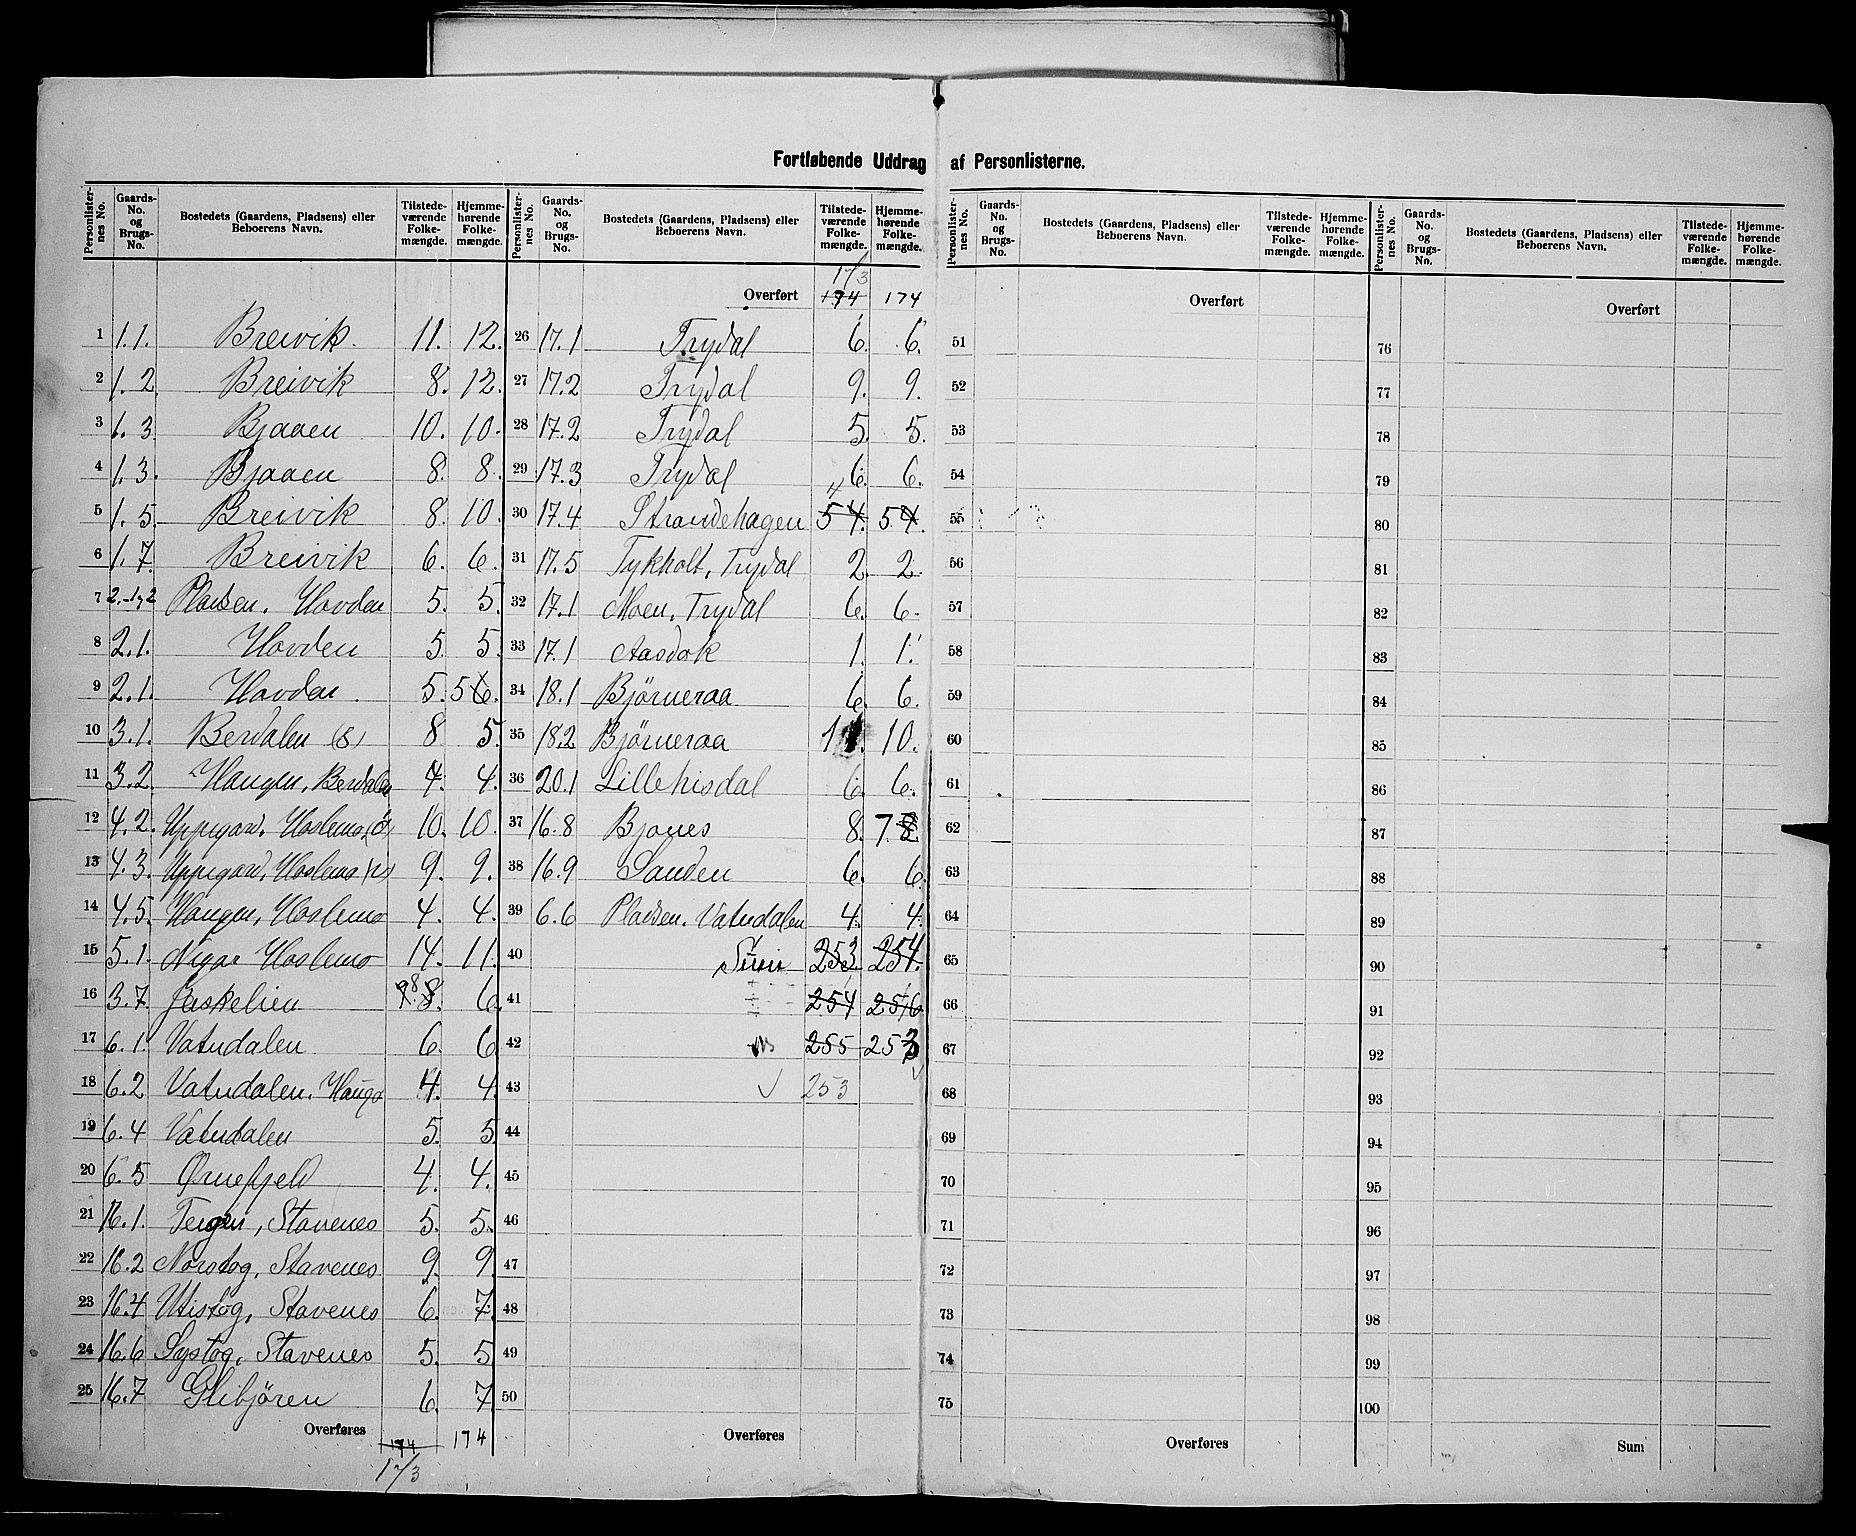 Fortløbende Uddrag af Personlisterne.
Personlister-nes No. | Gaards-No. og Brugs-No. | Bostedets (Gaardens, Pladsens) eller Beboerens Navn. | Tilstede-værende Folke-mængde. | Hjemme-hørende Folke-mængde.
1 | 1.1. | Breivik. | 11. | 12.
2 | 1.2. | Breivik | 8. | 12.
3 | 1.3 | Bjaaen | 10. | 10.
4 | 1.3. | Bjaaen | 8. | 8.
5 | 1.5. | Breivik | 8. | 10.
6 | 1.7. | Breivik | 6. | 6.
7 | 2.-1,2 | Pladsen. Hovden | 5. | 5.
8 | 2.1. | Hovden | 5. | 5.
9 | 2.1. | Hovden. | 5. | 5 6.
10 | 3.1. | Berdalen (S) | 8 | 5.
11 | 3.2. | Haugen, Berdalen | 4. | 4.
12 | 4.2. | Uppigard, Hoslemo, (ö) | 10. | 10.
13 | 4.3. | Uppigard, Hoslemo | 9. | 9.
14 | 4.5. | Haugen, Hoslemo | 4. | 4.
15 | 5.1. | Nigar Hoslemo | 14. | 11.
16 | 3.7. | Jaskelien | 9. 8 8. | 6.
17 | 6.1. | Vatndalen. | 6. | 6
18 | 6.2 | Vatndalen, Hauga | 4. | 4.
19 | 6.4 | Vatndalen | 5. | 5.
20 | 6.5 | Ørnefjeld | 4. | 4.
21 | 16.1. | Teigen, Stavenes | 5. | 5.
22 | 16.2 | Norstog, Stavenes | 9. | 9.
23 | 16.4 | Utistog, Stavenes | 6. | 7.
24 | 16.6 | Systog, Stavenes | 5. | 5
25 | 16.7 | Glibjören | 6. | 7
Overføres | 174 | 174
173
Personlister-nes No. | Gaards-No. og Brugs-No. | Bostedets (Gaardens, Pladsens) eller Beboerens Navn. | Tilstede-værende Folke-mængde. | Hjemme-hørende Folke-mængde.
173
Overført | 174 | 174
26 | 17.1 | Trydal | 6. | 6.
27 | 17.2 | Trydal | 9. | 9.
28 | 17.2 | Trydal | 5. | 5.
29 | 17.3 | Trydal | 6. | 6.
30 | 17.4 | Strandehagen | 5 4. | 5 4.
31 | 17.5 | Tykholt, Trydal | 2. | 2.
32 | 17.1 | Moen, Trydal | 6. | 6.
33 | 17.1 | Aasdok | 1. | 1.
34 | 18.1 | Björneraa | 6. | 6.
35 | 18.2 | Björneraa | 11. | 10.
36 | 20.1 | Lillehisdal | 6. | 6.
37 | 16.8 | Bjones | 8. | 7. 8.
38 | 16.9 | Sanden | 6. | 6.
39 | 6.6 | Pladsen. Vatndalen | 4. | 4.
40 | Sum | 253 | 254.
41 | 254 | 256
42 | 255 | 253
43 | 253
44
45
46
47
48
49
50
Overføres
Personlister-nes No. | Gaards-No. og Brugs-No. | Bostedets (Gaardens, Pladsens) eller Beboerens Navn. | Tilstede-værende Folke-mængde. | Hjemme-hørende Folke-mængde.
Overført
51
52
53
54
55
56
57
58
59
60
61
62
63
64
65
66
67
68
69
70
71
72
73
74
75
Overføres
Personlister-nes No. | Gaards-No. og Brugs-No. | Bostedets (Gaardens, Pladsens) eller Beboerens Navn. | Tilstede-værende Folke-mængde. | Hjemme-hørende Folke-mængde.
Overført
76
77
78
79
80
81
82
83
84
85
86
87
88
89
90
91
92
93
94
95
96
97
98
99
100
Sum